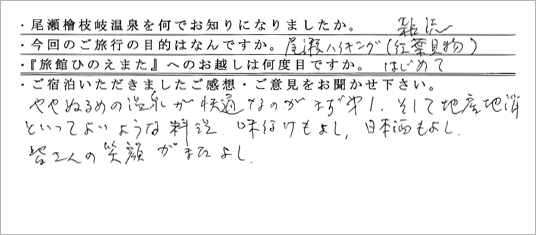 ・尾瀬檜枝岐温泉を何でお知りになりましたか。 雑誌
・今回のご旅行の目的はなんですか。 尾瀬ハイキング(紅葉見物)
・『旅館ひのえまた』へのお越しは何度目ですか。 はじめて
・ご宿泊いただきましたご感想・ご意見をお聞かせ下さい。
ややぬるめの温泉が快適なのがまず第1. そして地産地消
といってよいような料理 味付けもよし, 日本酒もよし.
皆さんの笑顔がまたよし.